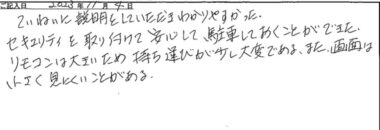 ご記入日 2023年 11月 4日
ていねいに説明をしていただきわかりやすかった。
セキュリティを取り付けて安心して駐車しておくことができた。
リモコンは大きいため持ち運びが少し大変である。また、画面は
小さく見にくいことがある。